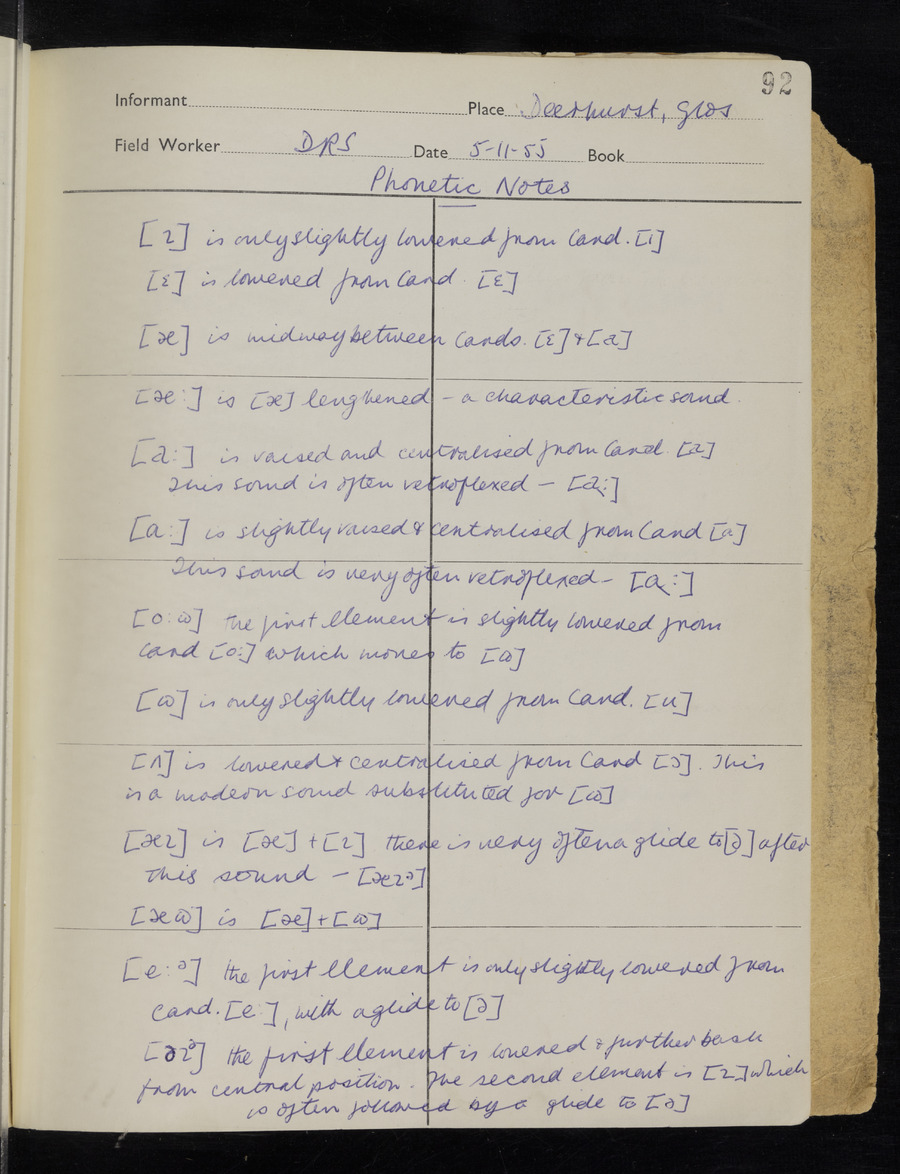 92
Informant Place Deerhurst, Glos
Field Worker DRS Date 5-11-55 Book
Phonetic Notes
[ɩ] is only slightly lowered from Card. [i]
[ɛ] is lowered from Card. [ɛ]
[æ] is midway between Cards. [ɛ] & [a]
[æː] is [æ] lengthened – a characteristic sound.
[aː] is raised and centralised from Card. [a]
This sound is often retroflexed – [aɻː]
[ɑː] is slightly raised & centralised from Card [ɑ]
This sound is very often retroflexed – [ɑɻː]
[oːɷ] the first element is slightly lowered from
Card [oː] which moves to [ɷ]
[ɷ] is only slightly lowered from Card. [u]
[ʌ] is lowered & centralised from Card [ɔ]. This
is a modern sound substituted for [ɷ]
[æɩ] is [æ] + [ɩ] there is very often a glide to [ə] after
this sound – [æɩᵊ]
[æɷ] is [æ] + [ɷ]
[eːᵊ] the first element is only slightly lowered from
Card. [eː], with a glide to [ə]
[əɩᵊ] the first element is lowered & further back
from central position. The second element is [ɩ] which
is often followed by a glide to [ə]